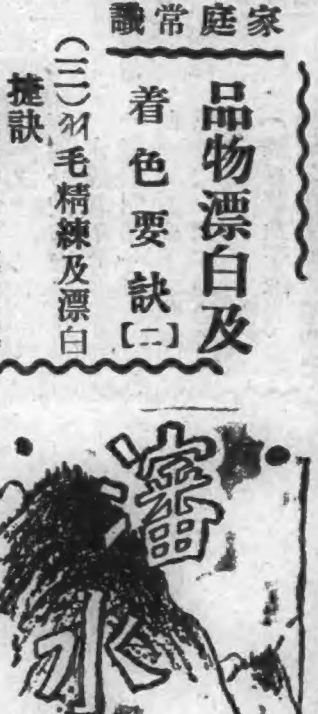 家庭常識
品物漂白及
着色要訣【二】
（三）羽毛精練及漂白
捷訣
瀋
水